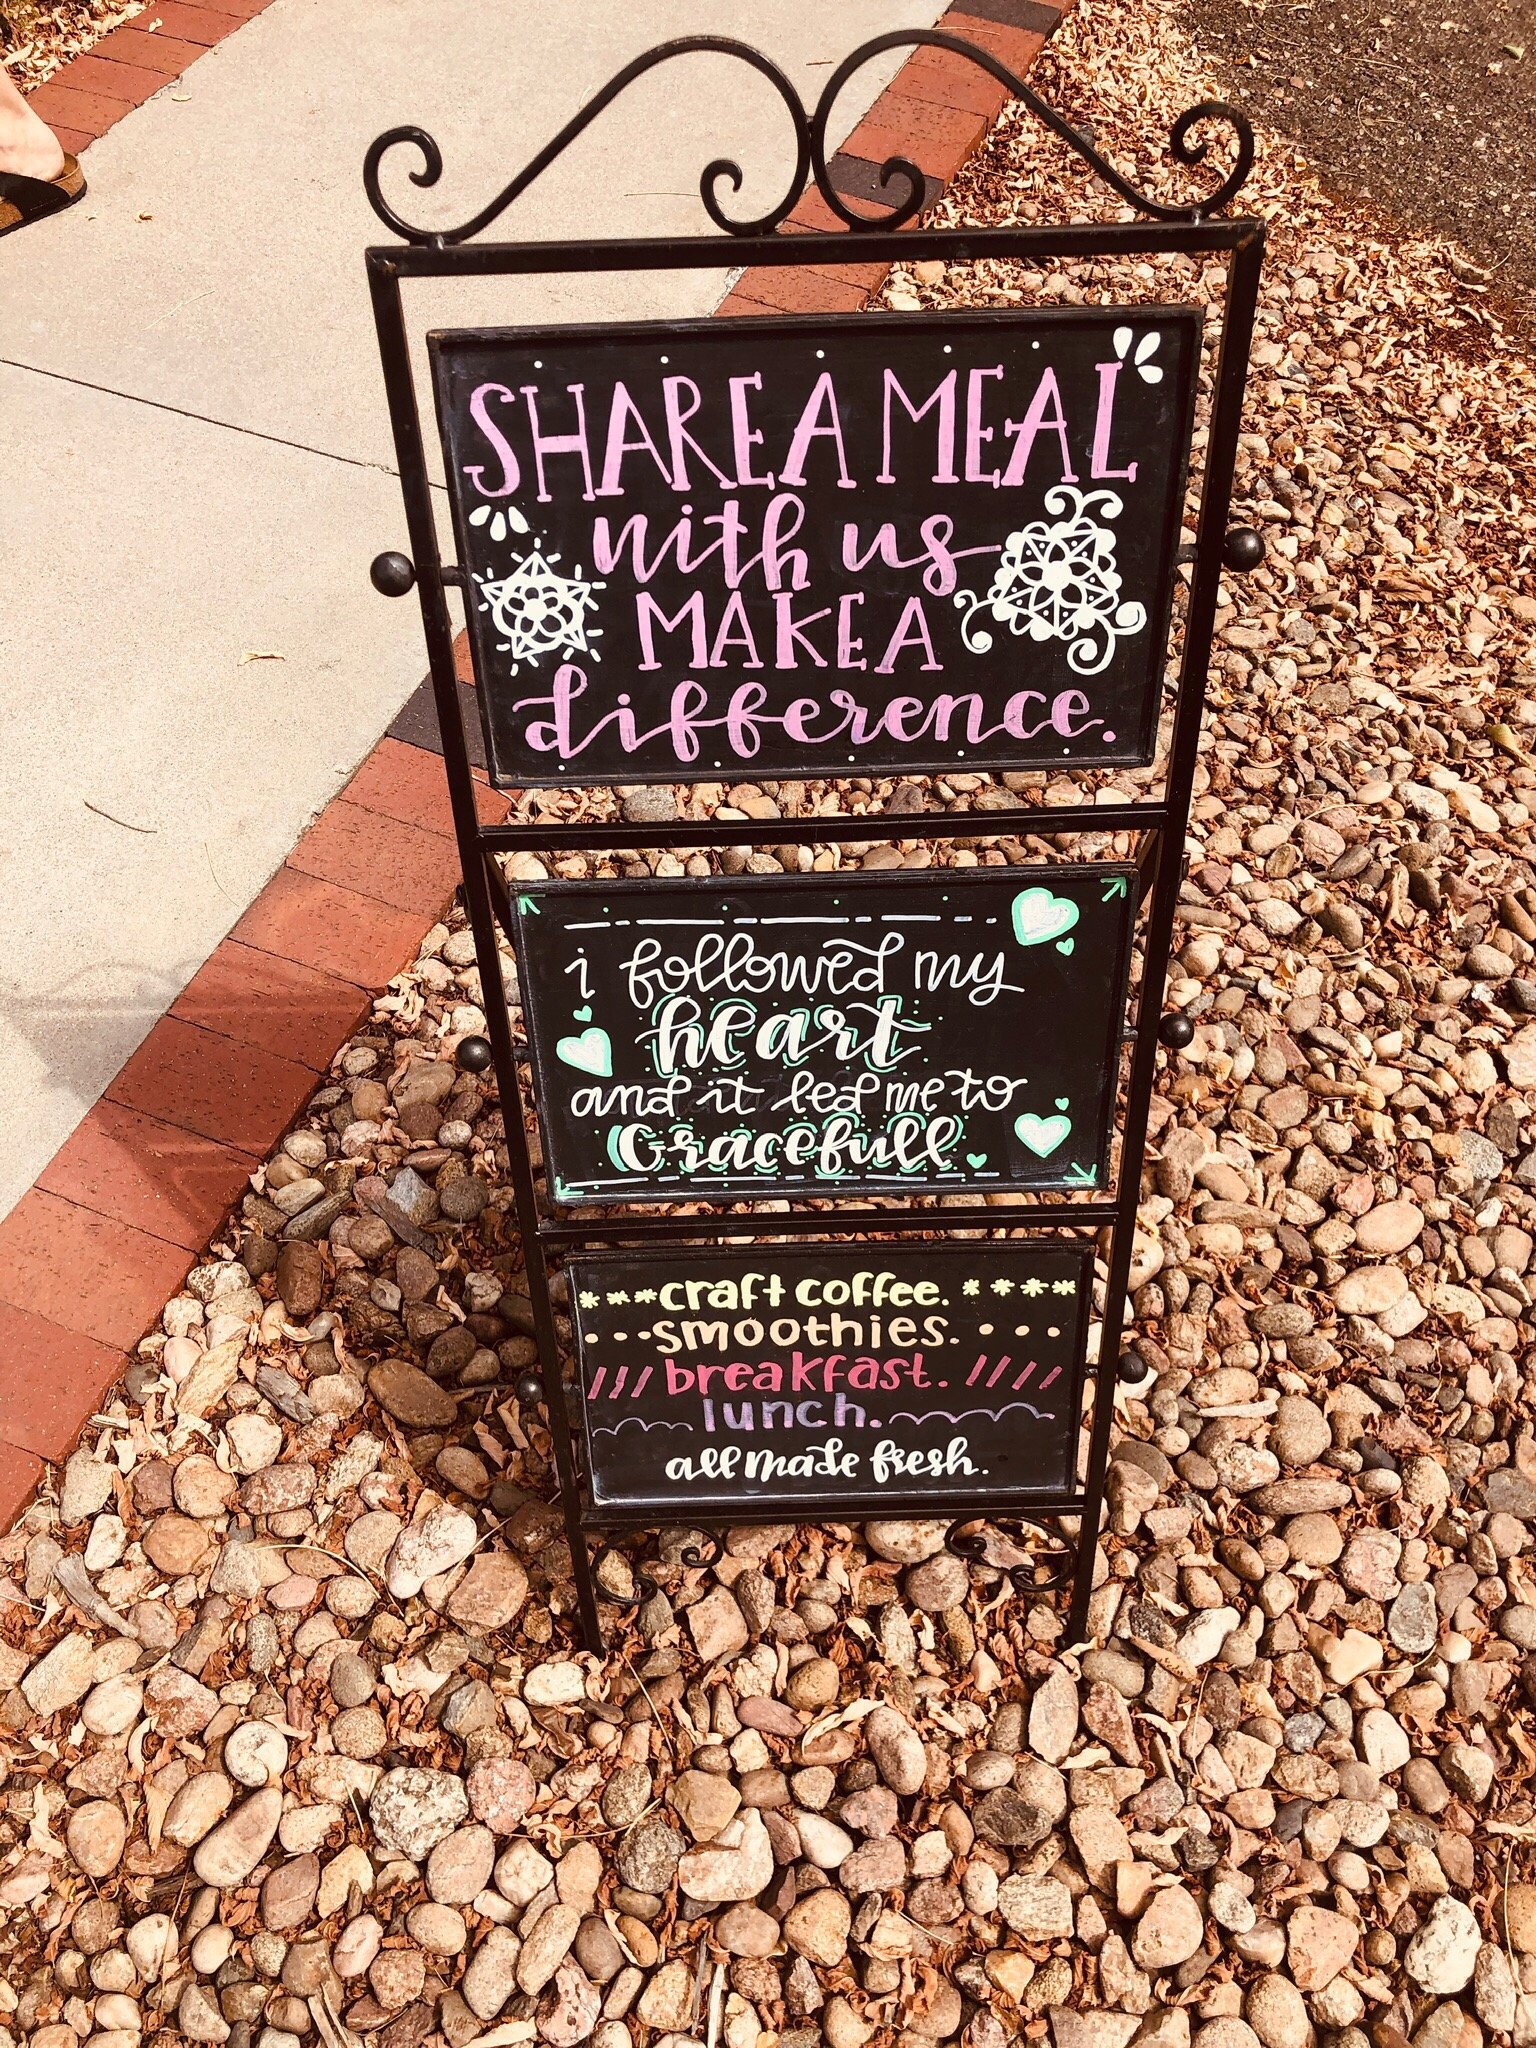 SHARE A MEAL
with us
MAKE A
difference.
i followed my
heart
and it led me to
Gracefull
craft coffee.
smoothies.
breakfast.
lunch.
all made fresh.